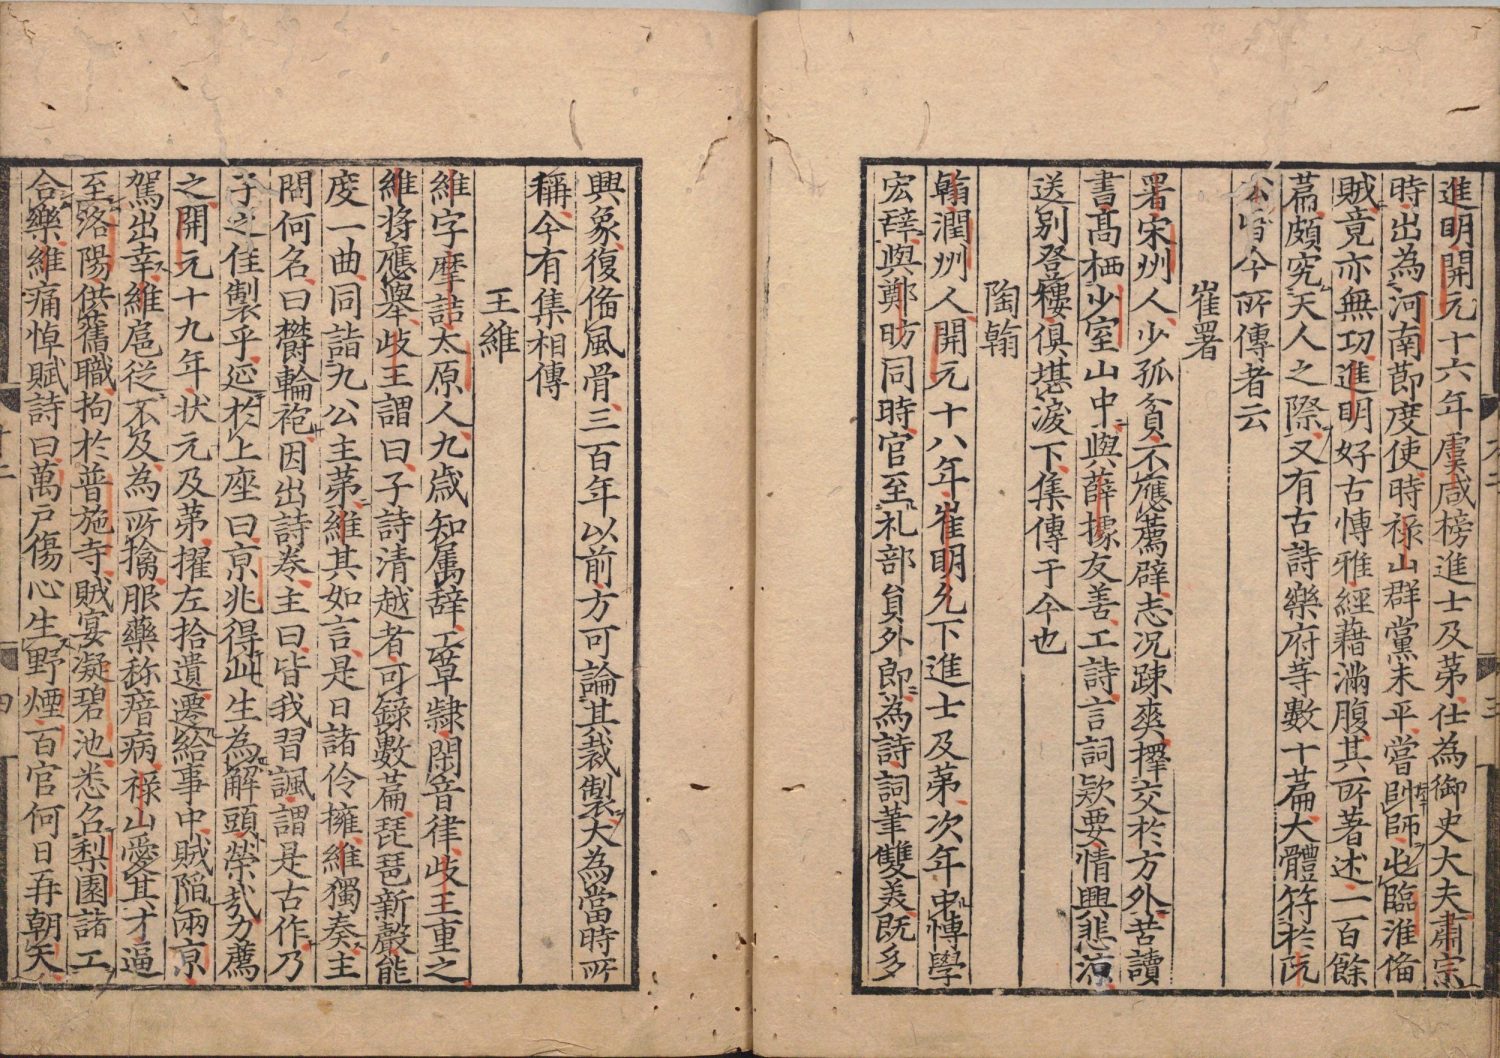 進明開元十六年虞咸榜進士及第仕為御史大夫肅宗
時出為河南節度使時禄山群黨未平嘗帥師屯臨淮俻
賊竟亦無功進明好古愽雅經籍滿腹其所著述一百餘
篇頗究天人之際又有古詩樂府等數十篇大體符於阮
公皆今所傳者云
崔署
署宋州人少孤貧不應薦辟志况踈爽擇交於方外苦讀
書髙栖少室山中與薛據友善工詩言詞欵要情興悲凉
送别登樓俱堪淚下集傳于今也
陶翰
翰潤州人開元十八年崔明允下進士及第次年中愽學
宏辞與鄭昉同時官至礼部貟外郎為詩詞筆雙美既多
興象復俻風骨三百年以前方可論其裁製大為當時所
稱今有集相傳
王維
維字摩詰太原人九歳知属辞工草隷閑音律歧王重之
維將應舉歧王謂曰子詩清越者可録數篇琵琶新聲能
度一曲同詣九公主第維其如言是日諸伶擁維獨奏主
問何名曰欝輪袍因出詩卷主曰皆我習諷謂是古作乃
子之佳製乎延於上座曰京兆得此生為解頭榮哉力薦
之開元十九年状元及第擢左拾遺遷給事中賊陷兩京
駕出幸維扈從不及為所擒服藥称瘖病禄山愛其才逼
至洛陽供舊職拘於普施寺賊宴凝碧池悉召梨園諸工
合樂維痛悼賦詩曰萬戸傷心生野煙百官何日再朝天